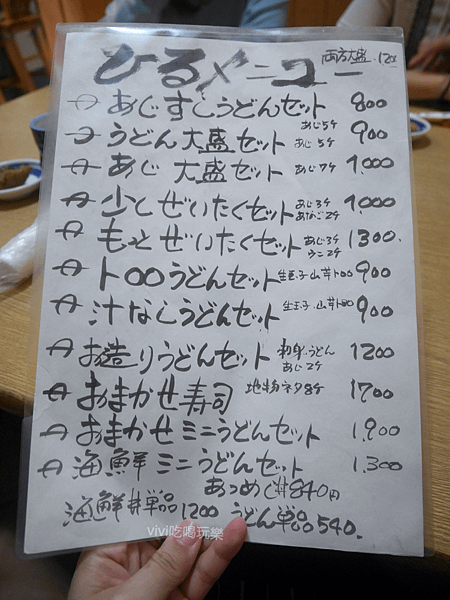 両方大盛 120
ひるメニュー
あじすしうどんセット あじ5ケ 800
うどん大盛セット あじ5ケ 900
あじ大盛セット あじ7ケ 1,000
少しぜいたくセット あじ3ケ あなご2ケ 1,000
もっとぜいたくセット あじ3ケ うに2ケ 1300.
トロロうどんセット 生玉子 山芋トロロ 900
汁なしうどんセット 生玉子 山芋トロロ 900
お造りうどんセット 刺身、うどん あじ2ケ 1200
おまかせ寿司 地物ネタ8ケ 1700
おまかせミニうどんセット 1,900
海鮮ミニうどんセット 1,300
あつめし丼840円
海鮮丼単品1200 うどん単品540.
vivi吃喝玩樂